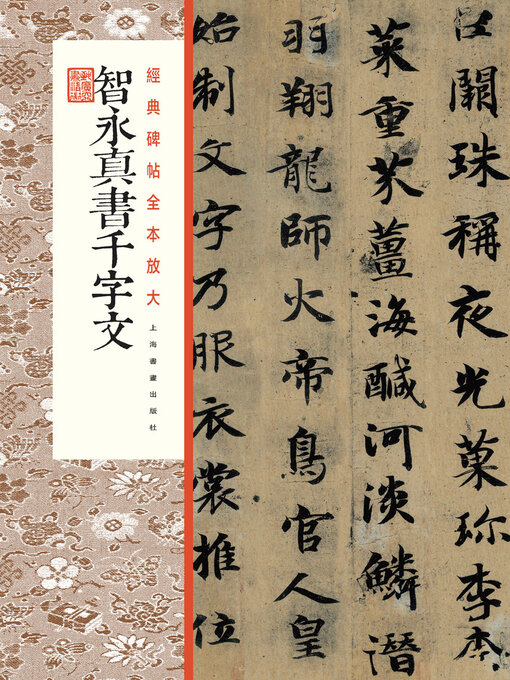 經典碑帖全本放大
智永真書千字文
上海書畫出版社
巨闕珠稱夜光菓珍李柰
菜重芥薑海醎河淡鱗潛
羽翔龍師火帝鳥官人皇
始制文字乃服衣裳推位